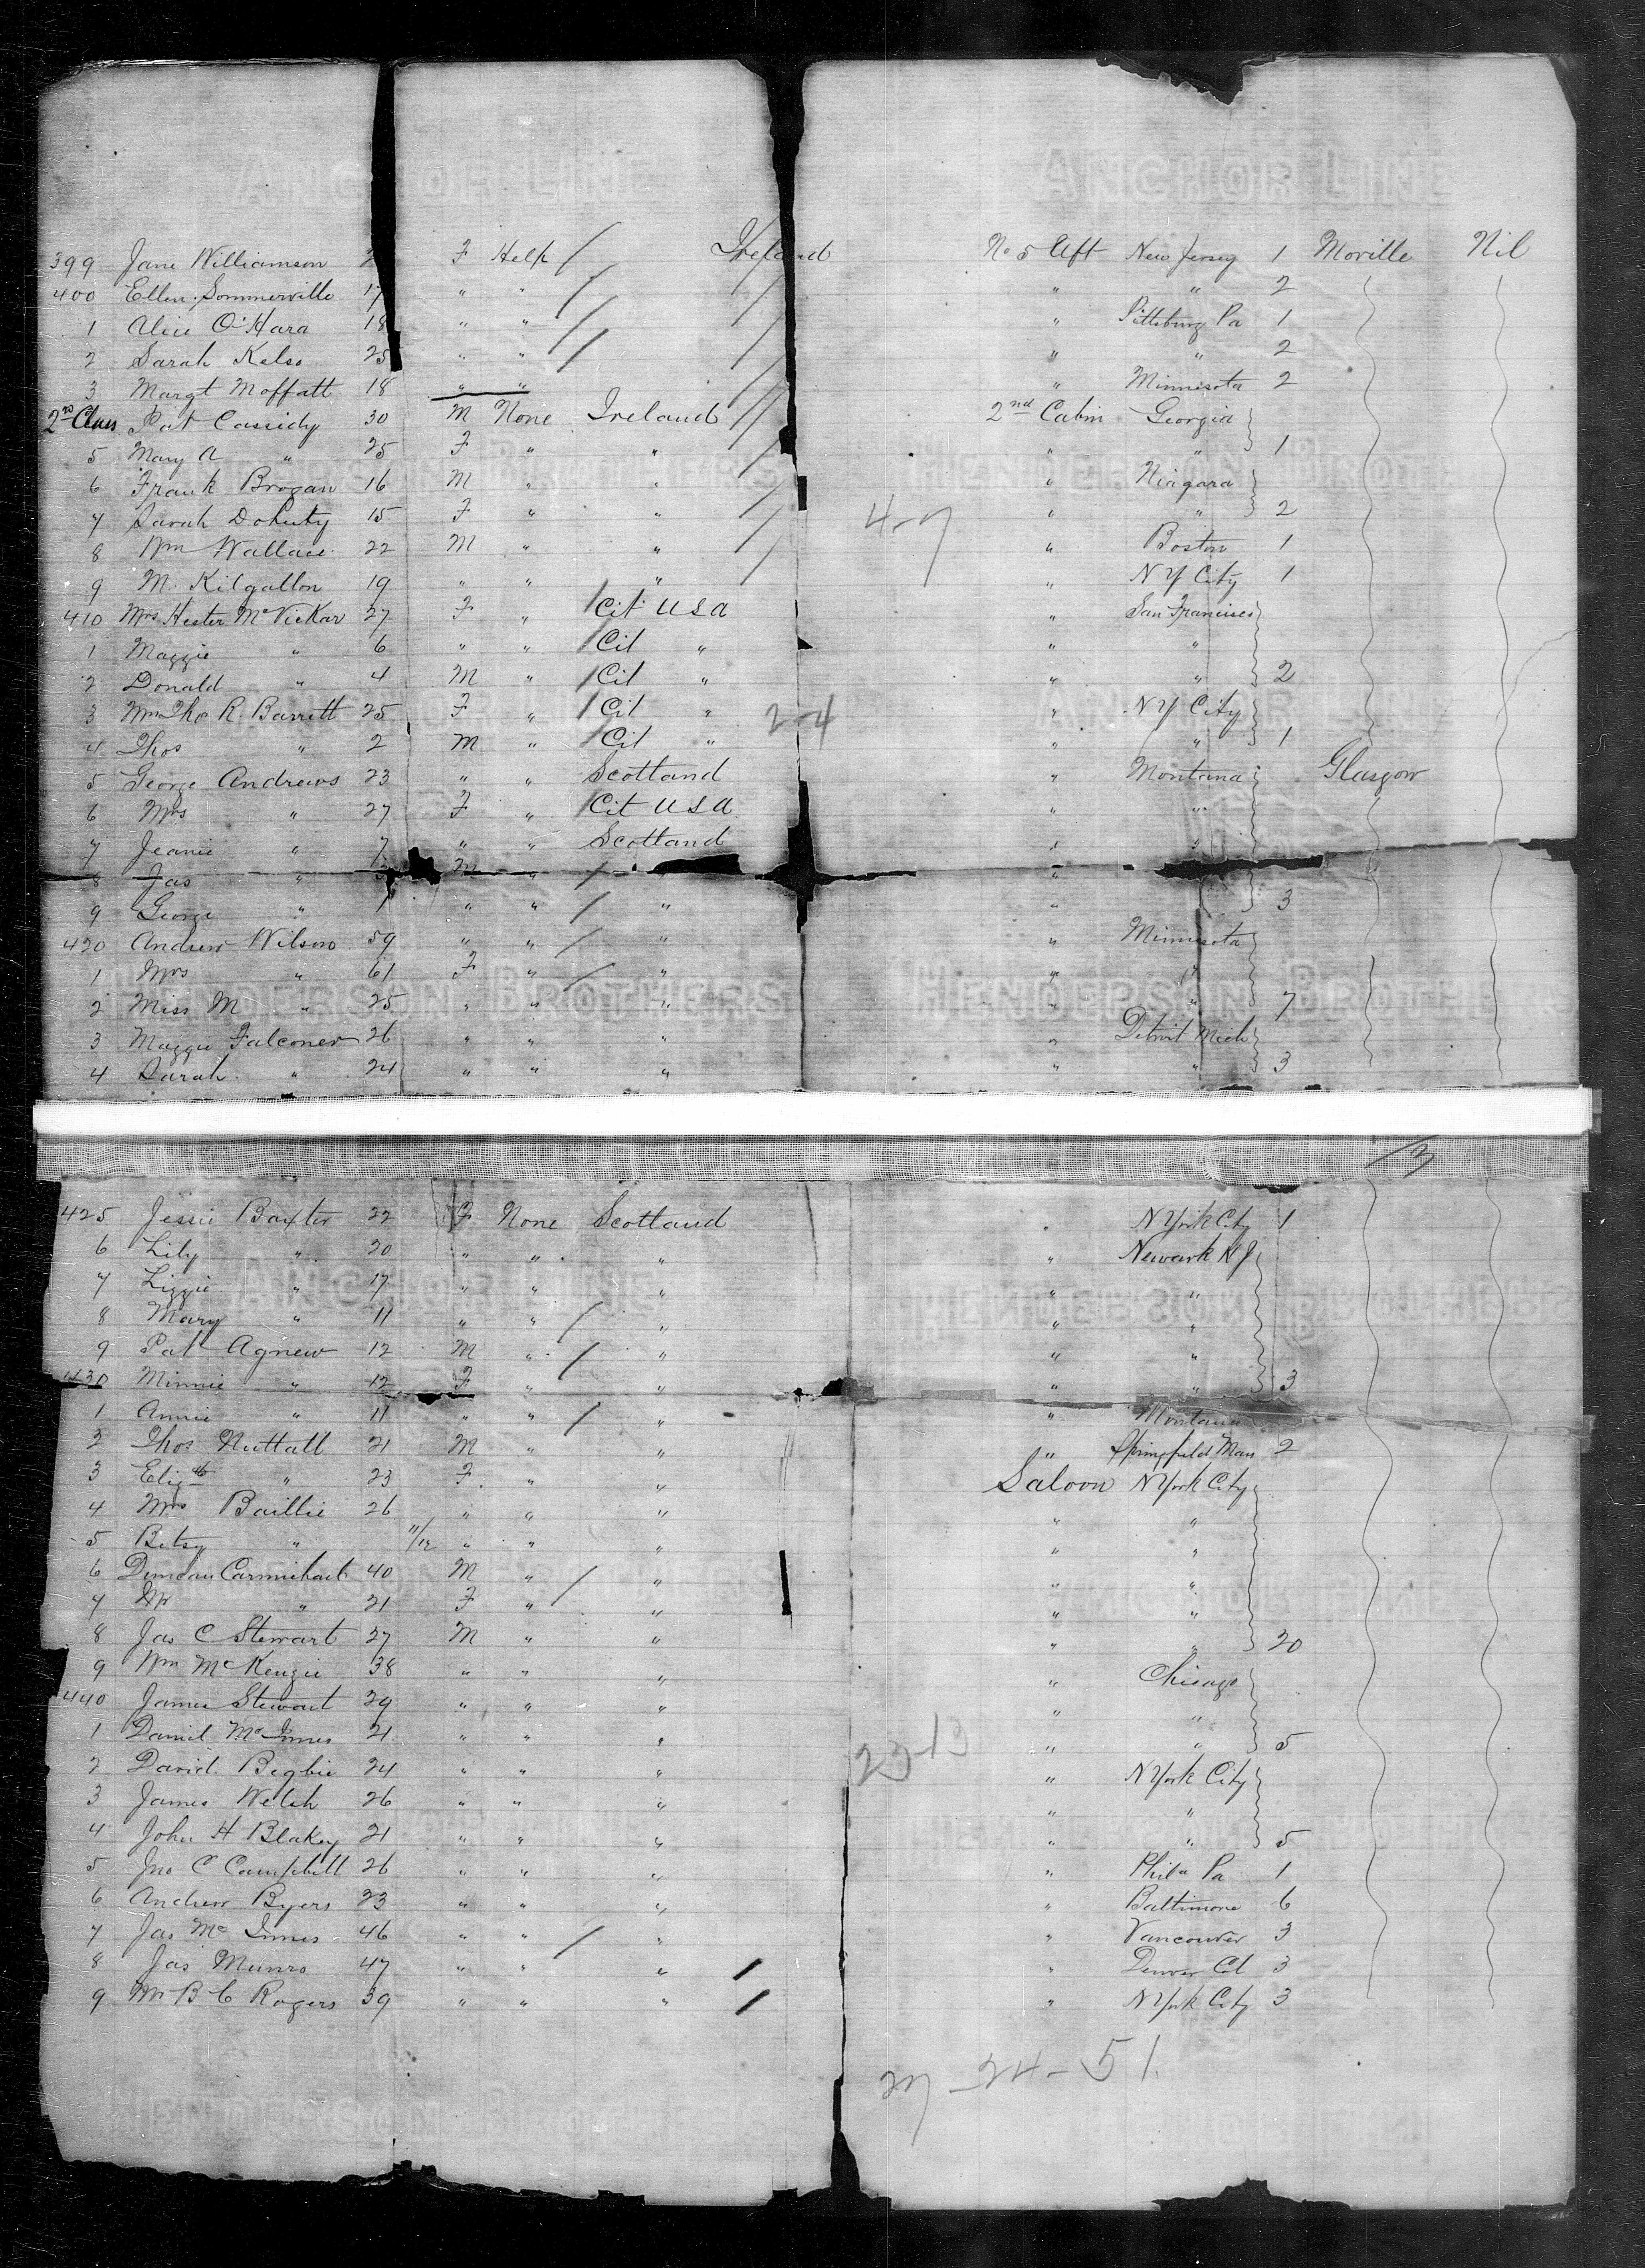 ANCHOR LINE ANCHOR LINE
399 Jane Williamson 2 F Help / Ireland No 5 Aft New Jersey 1 Moville Nil
400 Ellen Sommerville 17 " " / / " " 2
1 Alice O'Hara 18 " " / / " Pittsburg Pa 1
2 Sarah Kelso 25 " " / / " " 2
3 Margt Moffatt 18 " " / " Minnesota 2
2nd Class Pat Cassidy 30 M None Ireland // 2nd Cabin Georgia
5 Mary A " 25 F " " / " " 1
6 Frank Brogan 16 M " " " Niagara
7 Sarah Doherty 15 F " " / " " 2
8 Wm Wallace 22 M " " / " Boston 1
9 M. Kilgallon 19 " " " / " N Y City 1
410 Mrs Hester McVickar 27 F " / Cit USA " San Francisco
1 Maggie " 6 " " / Cit " " "
2 Donald " 4 M " / Cit " " " 2
3 R. Barrett 25 F " / Cit " 2-4 " N Y City
4 Thos " 2 M " / Cit " " " 1
5 George Andrews 23 " " Scotland " Montana Glasgow
6 Mrs " 27 F " Cit USA " "
7 Jeanie " 7 " " Scotland " "
8 Jas " 3 M " / " "
9 George " 1 " " / " " 3
420 Andrew Wilson 59 " " / " " Minnesota
1 Mrs " 61 F " / " " "
2 Miss M " 25 " " " " " 7
3 Maggie Falconer 26 " " " " Detroit Mich
4 Sarah " 24 " " " " " 3
425 Jessie Baxter 22 F None Scotland " N York City 1
6 Lily " 20 " " " " Newark N J
7 Lizzie " 17 " " " " "
8 Mary " 11 " " / " " "
9 Pat Agnew 12 M " / " " "
430 Minnie " 12 F " " " " 3
1 Annie " 11 " " / " " Montana
2 Thos Nuttall 21 M " " " Springfield Mass 2
3 Elizth " 23 F " " Saloon N York City
4 Mrs Baillie 26 " " " " "
5 Betsy " 11/12 " " " " "
6 Duncan Carmichael 40 M " / " " "
7 " 21 F " / " " "
8 Jas C Stewart 27 M " " " " 20
9 Wm McKenzie 38 " " " " Chicago
440 James Stewart 29 " " " " "
1 Daniel McInnes 21 " " " " " 5
2 David Begbie 24 " " " " N York City
3 James Welsh 26 " " " " "
4 John H Blakey 21 " " " " " 5
5 Jno C Campbell 26 " " " " Phila Pa 1
6 Andrew Byers 23 " " " " Baltimore 6
7 Jas McInnes 46 " " / " " Vancouver 3
8 Jas Munro 47 " " " / " Denver Col 3
9 B C Rogers 39 " " " / " N York City 3
27-24-51
HENDERSON BROTHERS